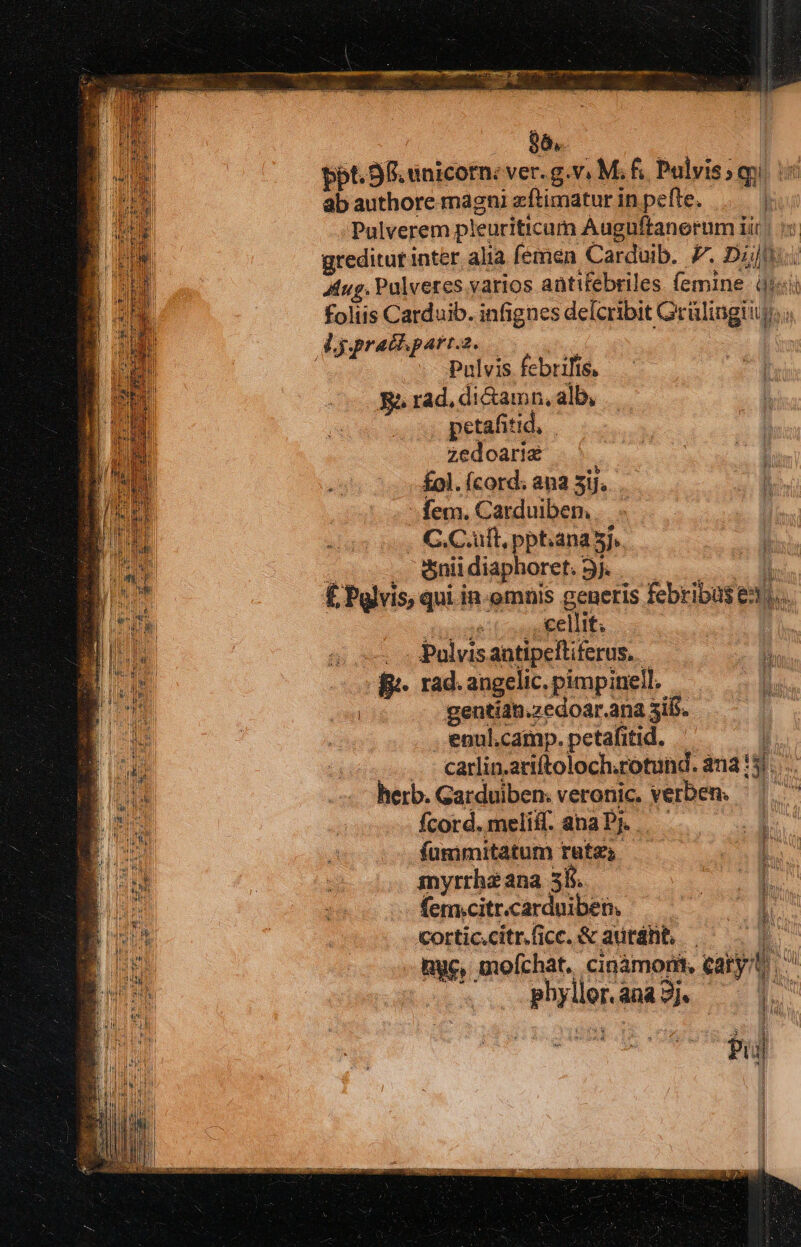 86.
ppt. ℈ß. unicorn. ver. g.v. M. f. Pulvis, qui
ab authore magni æſtimatur in peſte.
Pulverem pleuriticum Auguſtanorum in
greditur inter alia ſemen Carduib. V. Diſ
Aug. Pulveres varios antifebriles ſemine
foliis Carduib. inſignes deſcribit Grülingiu
l.5. pract. part. 2.
Pulvis febrilis.
℞. rad. dictamn. alb.
petaſitid.
zedoariæ
fol. ſcord. ana ʒij.
ſem. Carduiben.
C.C. uſt. ppt. ana ʒj.
♁nii diaphoret. ℈j.
f. Pulvis, qui in omnis generis febribus ex
cellit.
Pulvis antipeſtiferus.
℞. rad. angelic. pimpinell.
gentian. zedoar. ana ʒiß.
enul. camp. petaſitid.
carlin. ariſtoloch. rotund. ana ʒj.
herb. Carduiben. veronic. verben.
ſcord. meliſſ. ana Pj.
ſummitatum rutæ,
myrrhæ ana ʒß.
ſem. citr. carduiben.
cortic. citr. ſicc. & aurant.
nuc. moſchat. cinamom. cary
phyllor. ana ℈j.
Pul